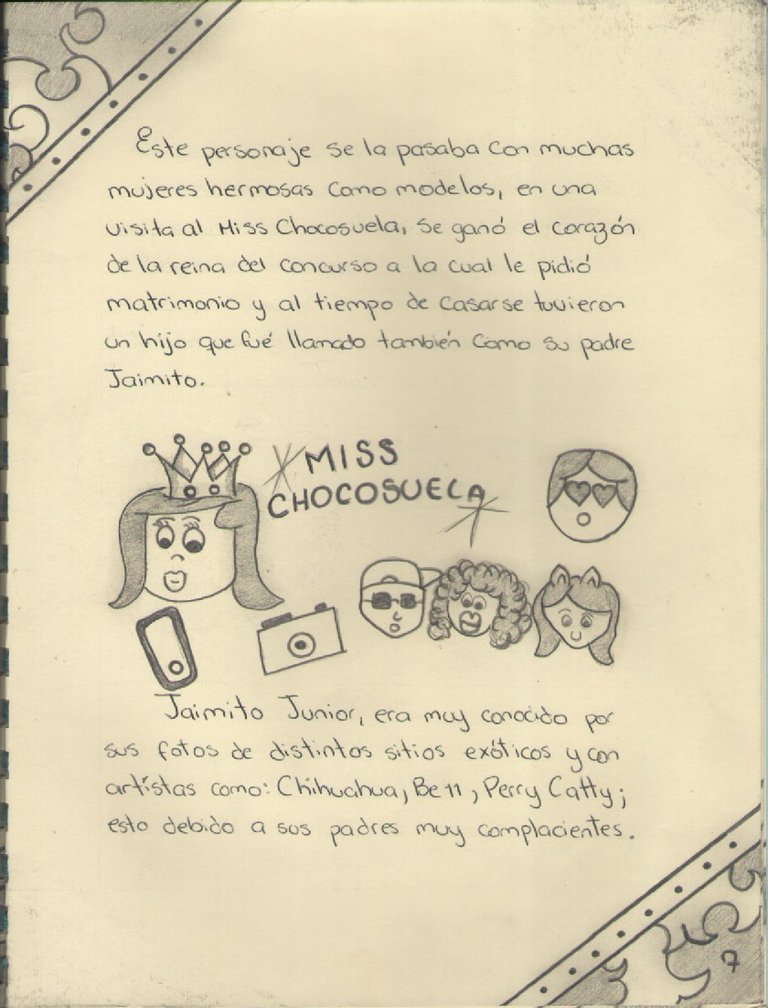 Este personaje se la pasaba con muchas
mujeres hermosas como modelos, en una
visita al Miss Chocosuela, se ganó el corazón
de la reina del concurso a la cual le pidió
matrimonio y al tiempo de casarse tuvieron
un hijo que fué llamado también como su padre
Jaimito.
MISS
CHOCOSUELA
Jaimito Junior, era muy conocido por
sus fotos de distintos sitios exóticos y con
artístas como: Chihuahua, Be11, Perry Catty;
esto debido a sus padres muy complacientes.
7